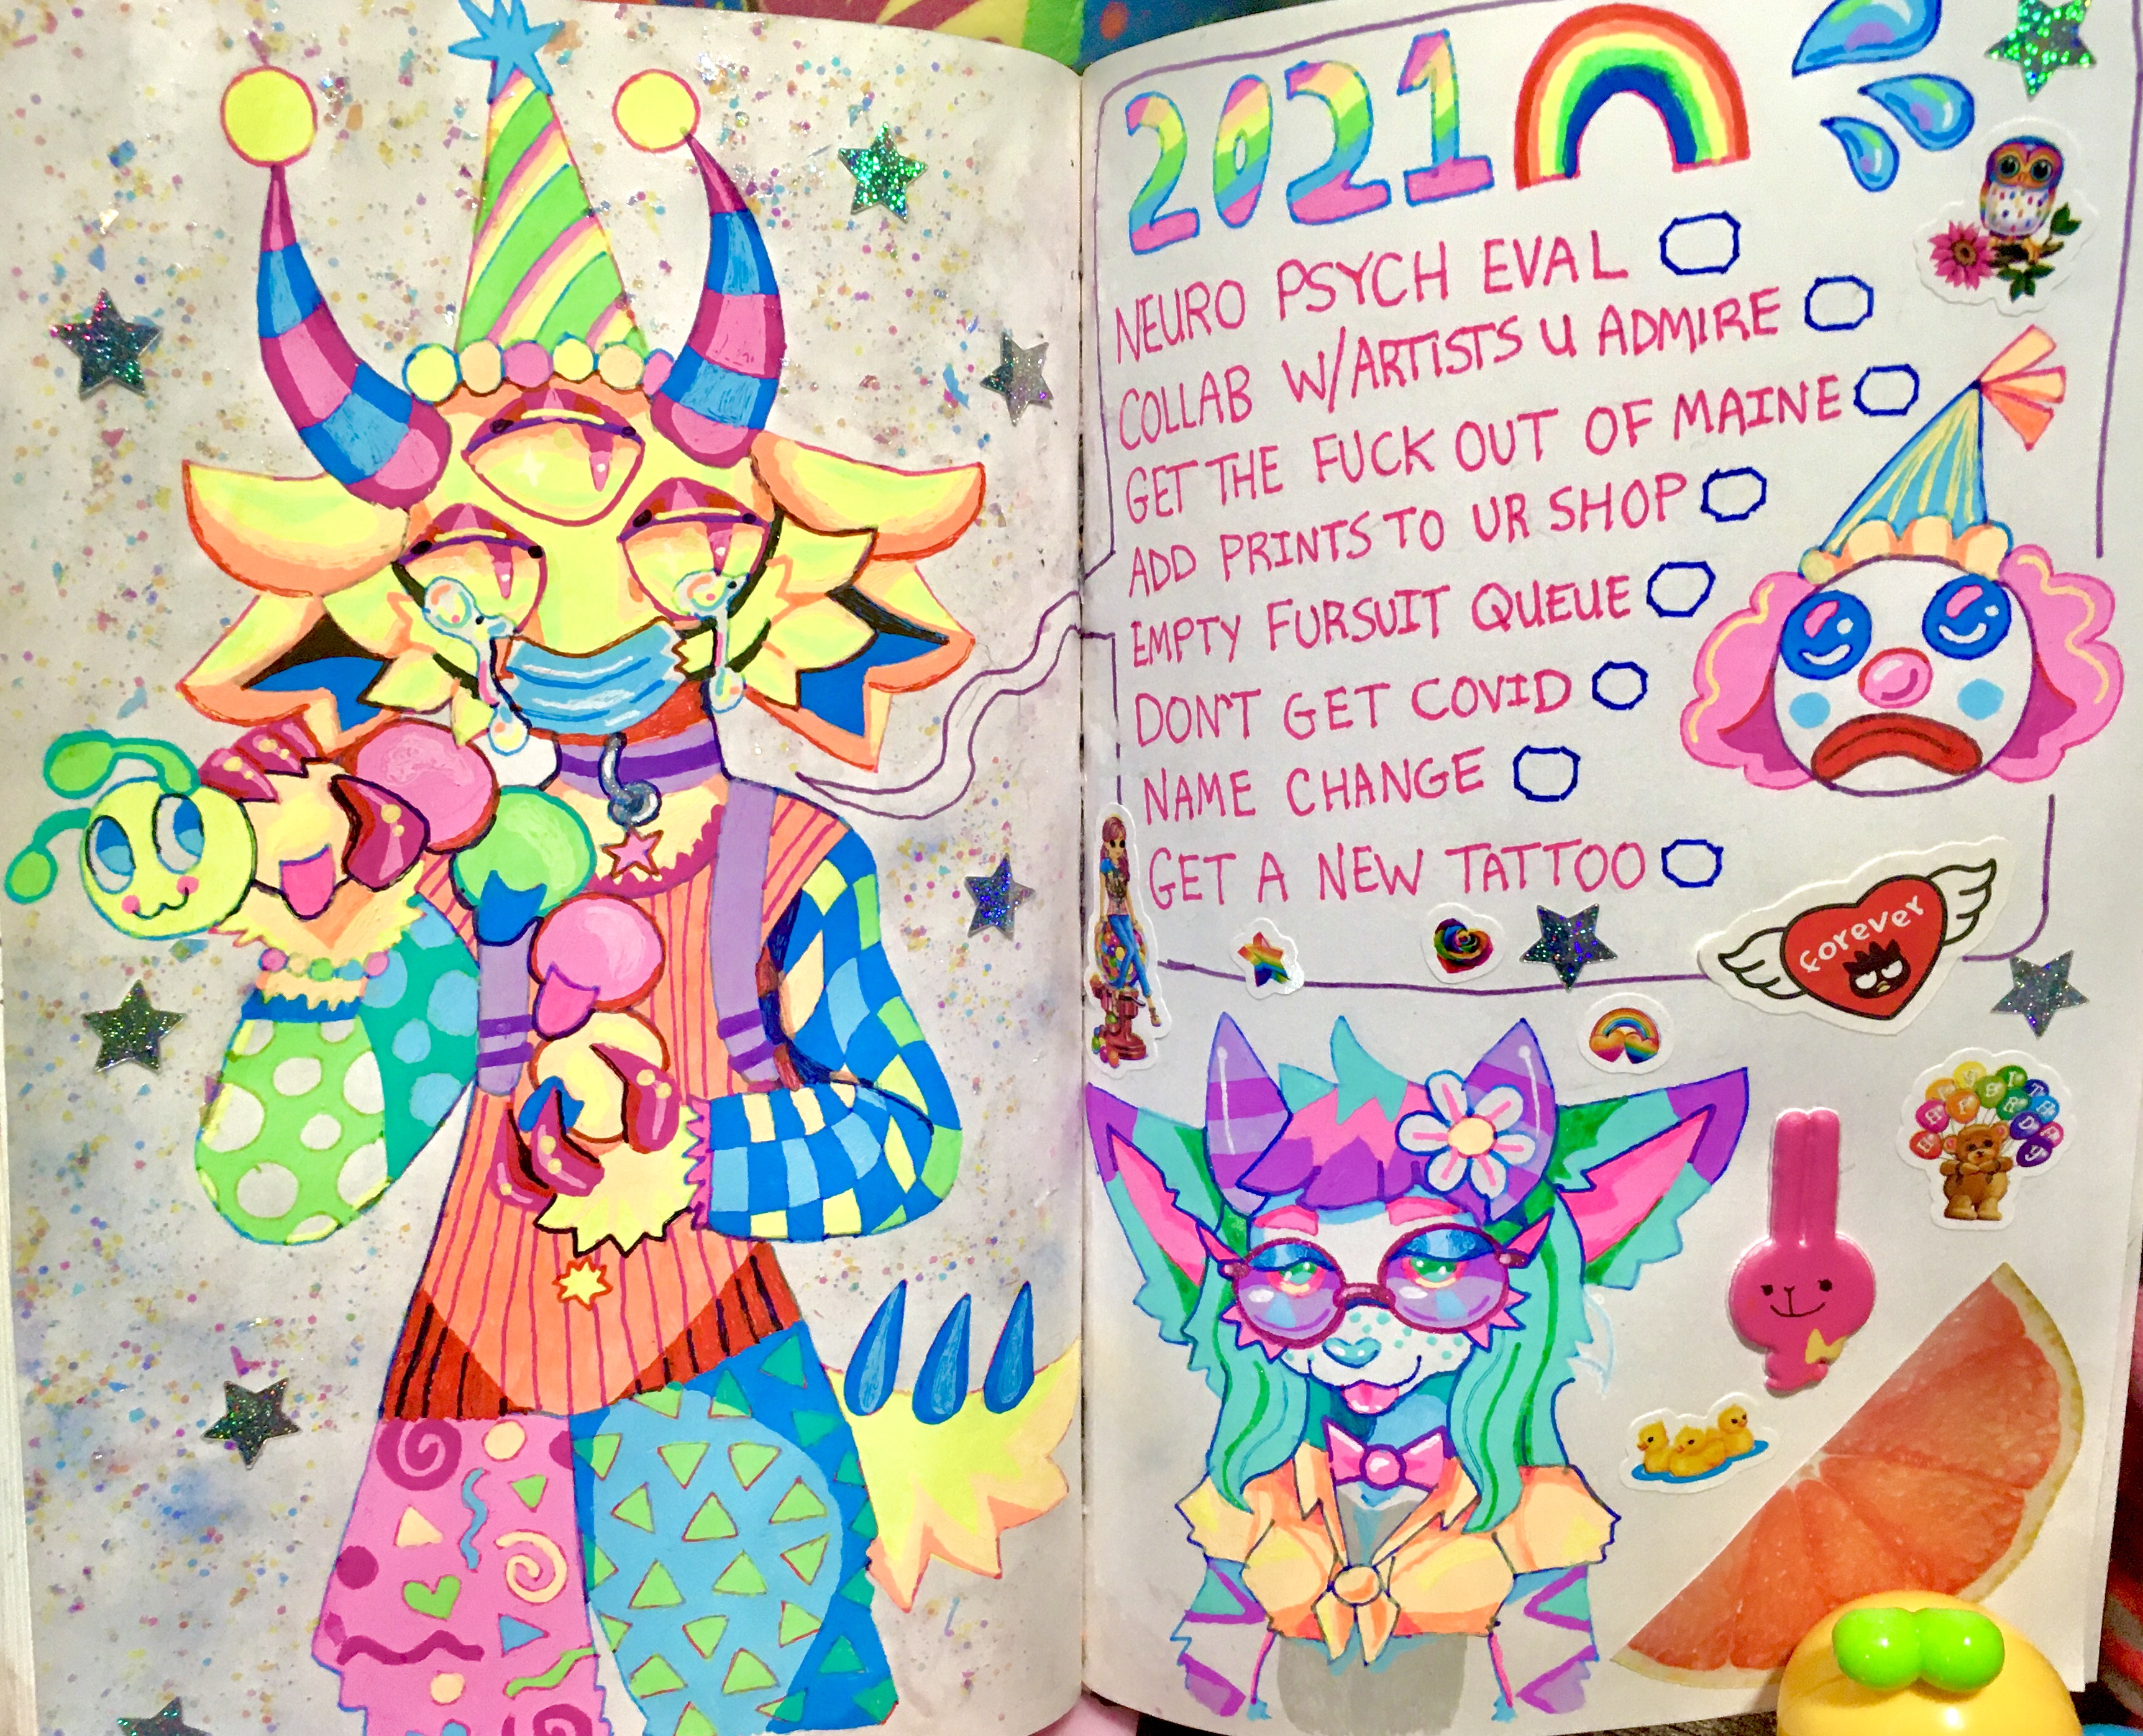 2021
NEURO PSYCH EVAL
COLLAB W/ARTISTS U ADMIRE
GET THE FUCK OUT OF MAINE
ADD PRINTS TO UR SHOP
EMPTY FURSUIT QUEUE
DON'T GET COVID
NAME CHANGE
GET A NEW TATTOO
forever